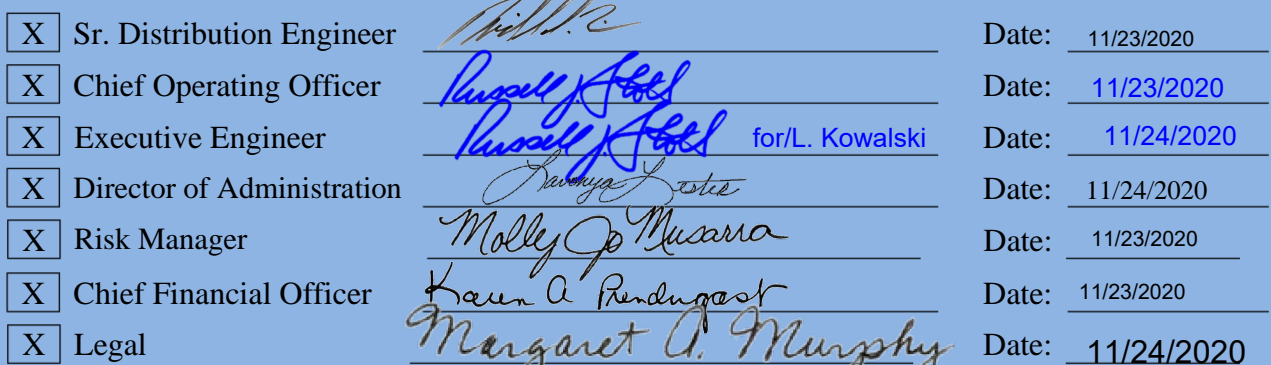 X Sr. Distribution Engineer Date: 11/23/2020
X Chief Operating Officer Russell J. Date: 11/23/2020
X Executive Engineer Russell J. for/L. Kowalski Date: 11/24/2020
X Director of Administration Date: 11/24/2020
X Risk Manager Molly Jo Musarra Date: 11/23/2020
X Chief Financial Officer Karen A Prendergast Date: 11/23/2020
X Legal Margaret A. Murphy Date: 11/24/2020